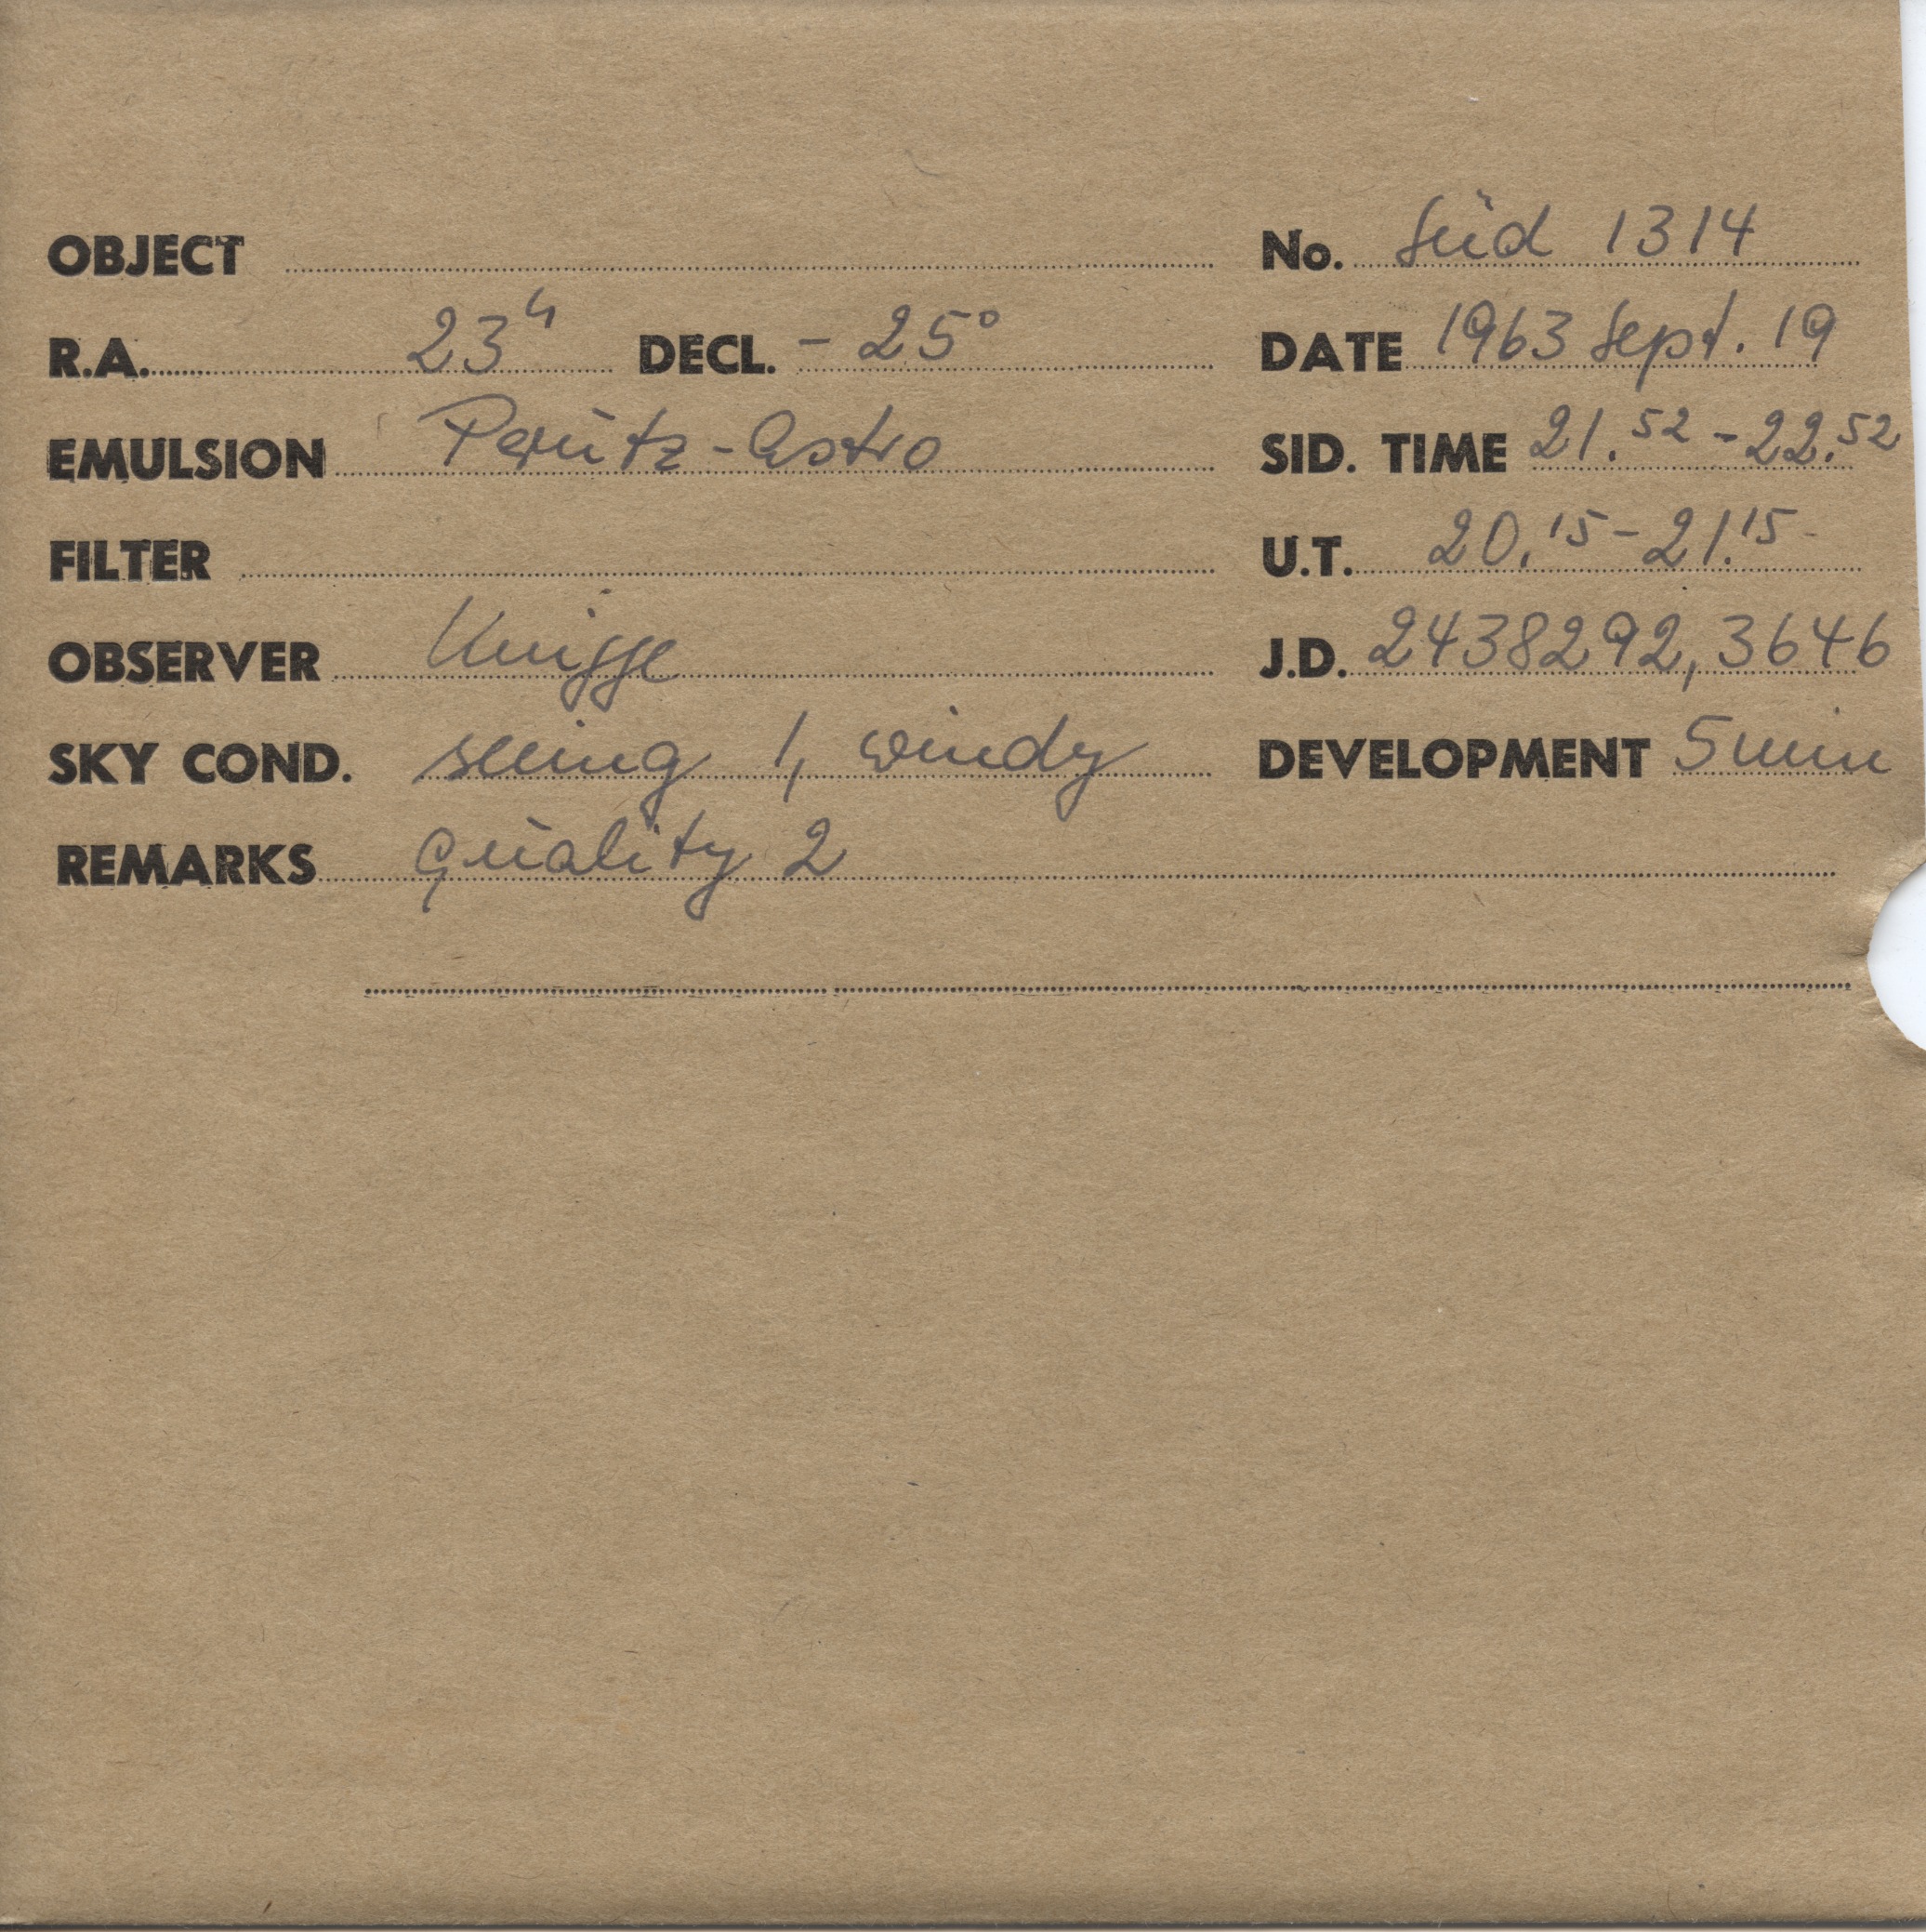 OBJECT No. Süd 1314
R.A. 23h DECL. - 25° DATE 1963 Sept. 19
EMULSION Perutz-Astro SID. TIME 21.52 - 22.52
FILTER U.T. 20.15 - 21.15
OBSERVER Knigge J.D. 2438292,3646
SKY COND. seeing 1, windy DEVELOPMENT 5 min
REMARKS quality 2